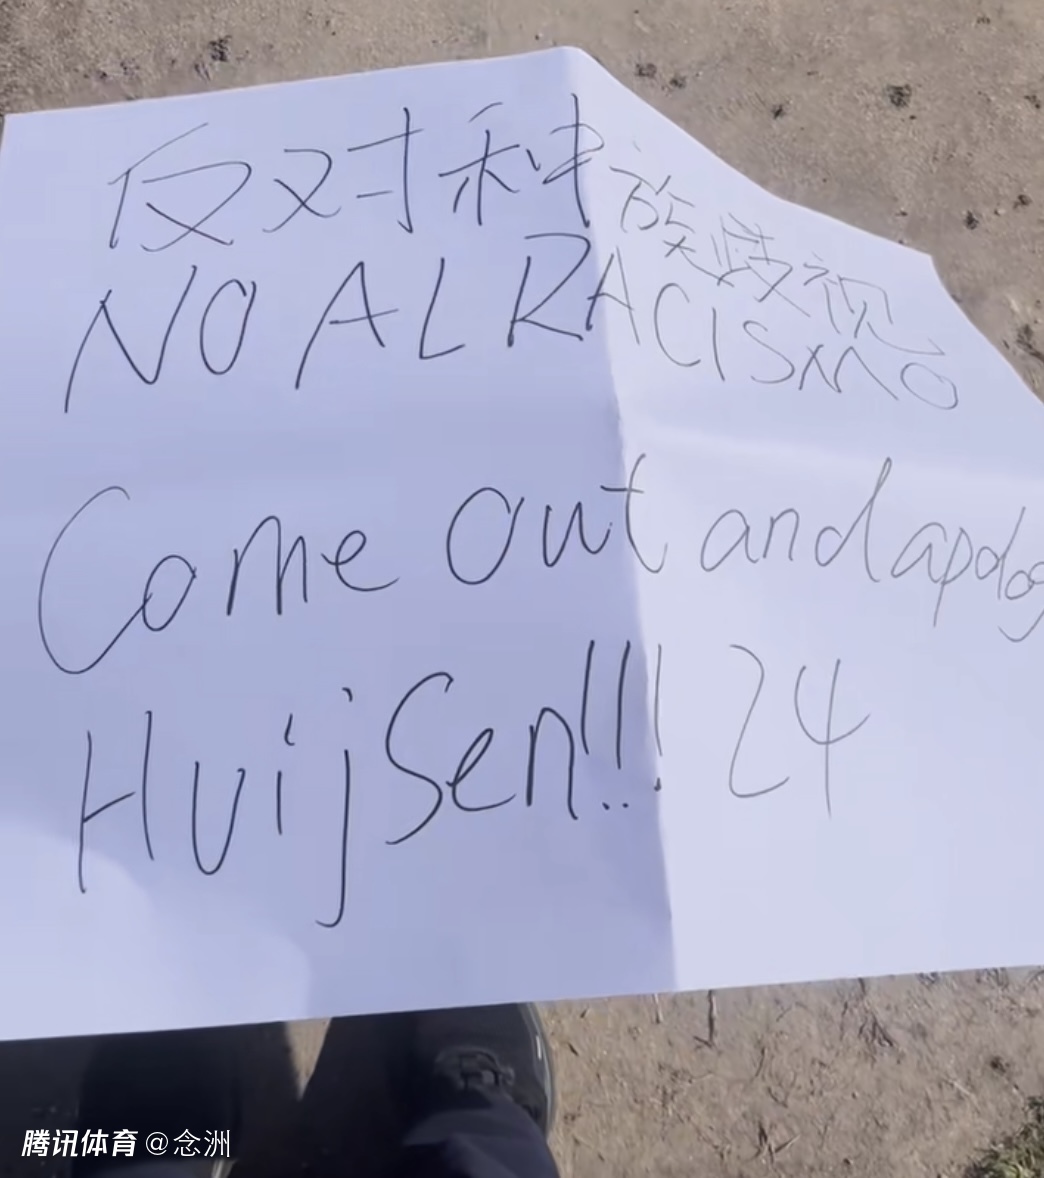 反对种族歧视
NO AL RACISMO
Come out and apolog
Huijsen!!! 24
腾讯体育 @念洲